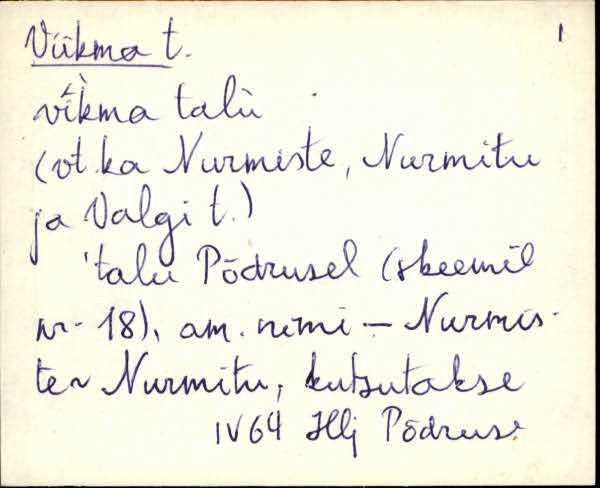 Viikma t. 1
vī̀kma talù
(vt. ka Nurmiste, Nurmitu
ja Valgi t.)
'talu Põdrusel (skeemil
nr. 18), am. nimi – Nurmis-
te ~ Nurmitu, kutsutakse
IV 64 Hlj Põdruse